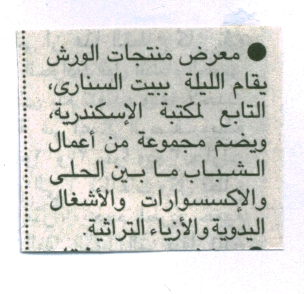 ● معرض منتجات الورش
يقام الليلة ببيت السنارى،
التابع لمكتبة الإسكندرية،
ويضم مجموعة من أعمال
الشباب ما بين الحلى
والإكسسوارات والأشغال
اليدوية والأزياء التراثية.